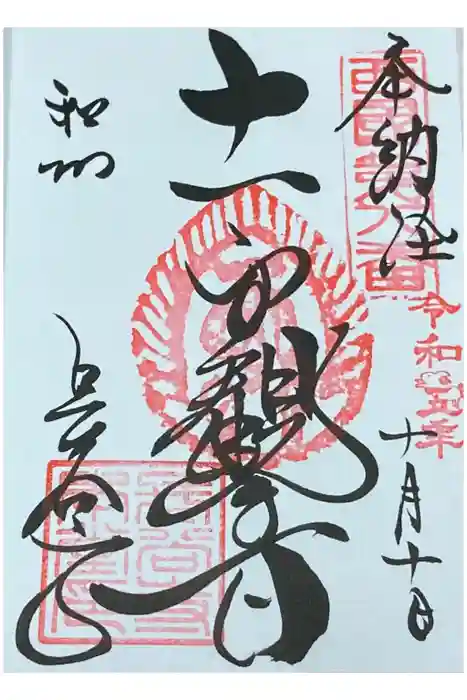 奉納経
西國第八番
令和五年
十月十日
十一面観音
和州
長谷寺